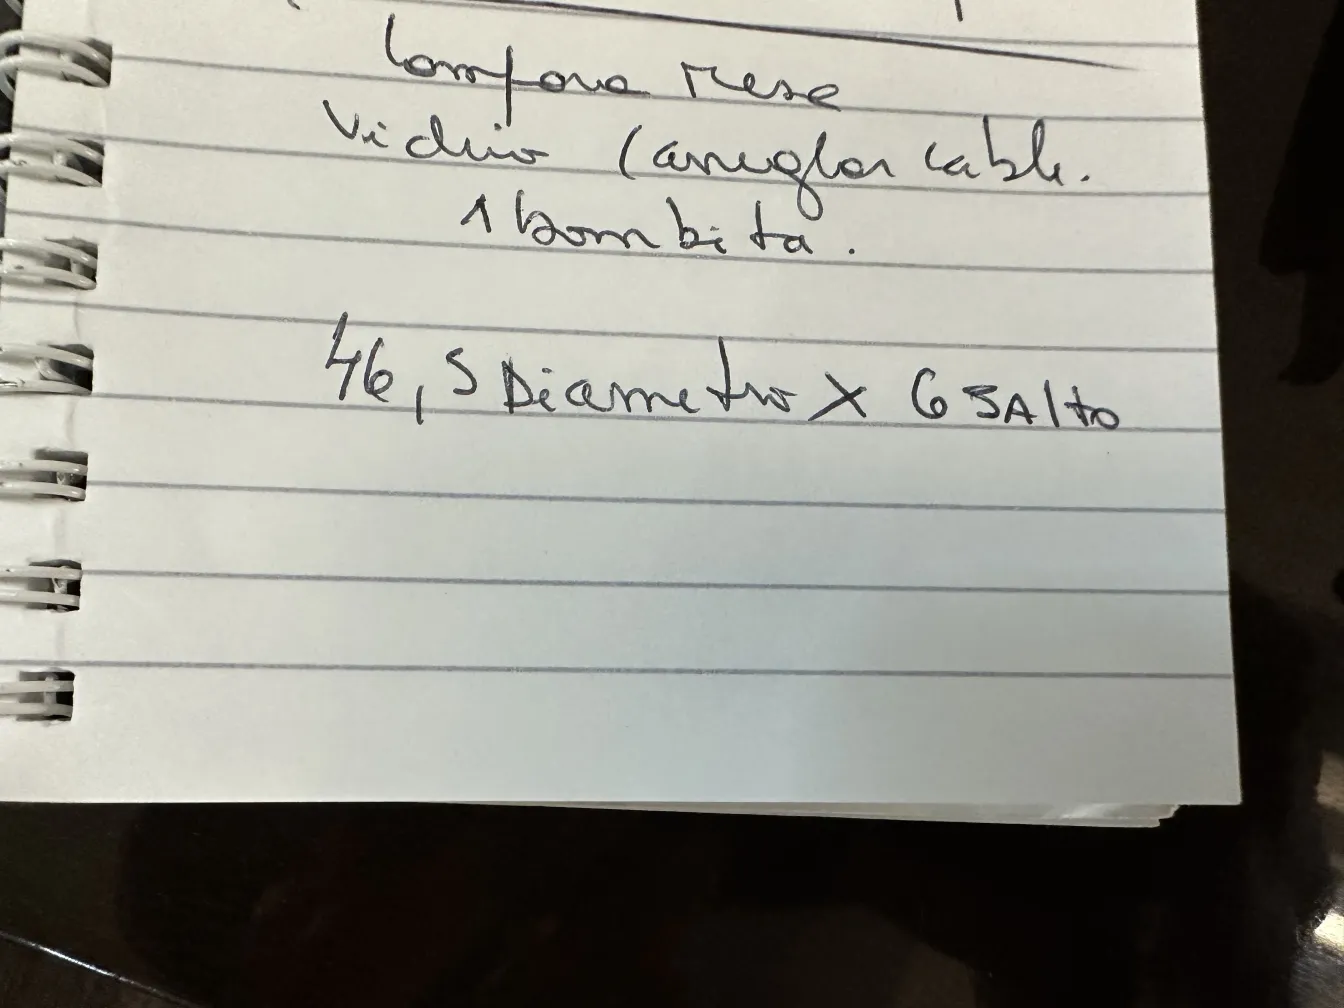 Lampara Mesa
Vidrio (arreglar cable.
1 bombita.
46,5 Diametro X 65 Alto